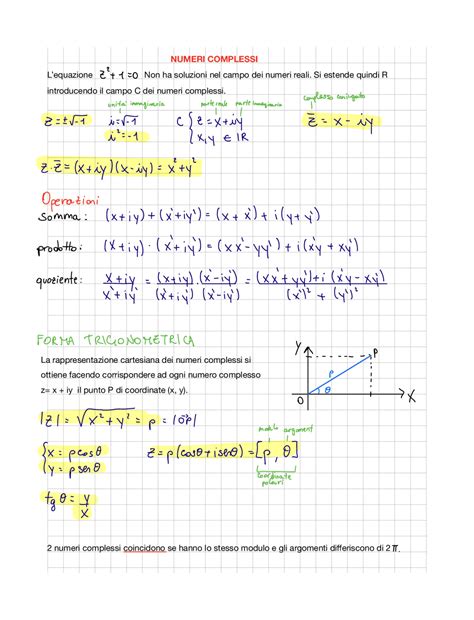 NUMERI COMPLESSI
L'equazione z²+1=0 Non ha soluzioni nel campo dei numeri reali. Si estende quindi R
introducendo il campo C dei numeri complessi.
unità immaginaria parte reale parte immaginaria complesso coniugato
z=±√-1 i=√-1 C { z=x+iy z̄ = x - iy
i²=-1 x,y ∈ IR
z·z̄=(x+iy)(x-iy)=x²+y²
Operazioni
somma: (x+iy)+(x'+iy')=(x+x')+i(y+y')
prodotto: (x+iy)·(x'+iy')=(xx'-yy')+i(x'y+xy')
quoziente: x+iy/x'+iy' = (x+iy)/(x'+iy') · (x'-iy')/(x'-iy') = (xx'+yy')+i(x'y-xy')/(x')²+(y')²
FORMA TRIGONOMETRICA
La rappresentazione cartesiana dei numeri complessi si
ottiene facendo corrispondere ad ogni numero complesso
z= x + iy il punto P di coordinate (x, y).
y P
ρ
θ
O x
|z|=√x²+y² = ρ = |OP|
modulo argoment
{ x=ρcosθ z=ρ(cosθ+isenθ)=[ρ,θ]
y=ρsenθ
coordinate
polari
tgθ=y/x
2 numeri complessi coincidono se hanno lo stesso modulo e gli argomenti differiscono di 2π.